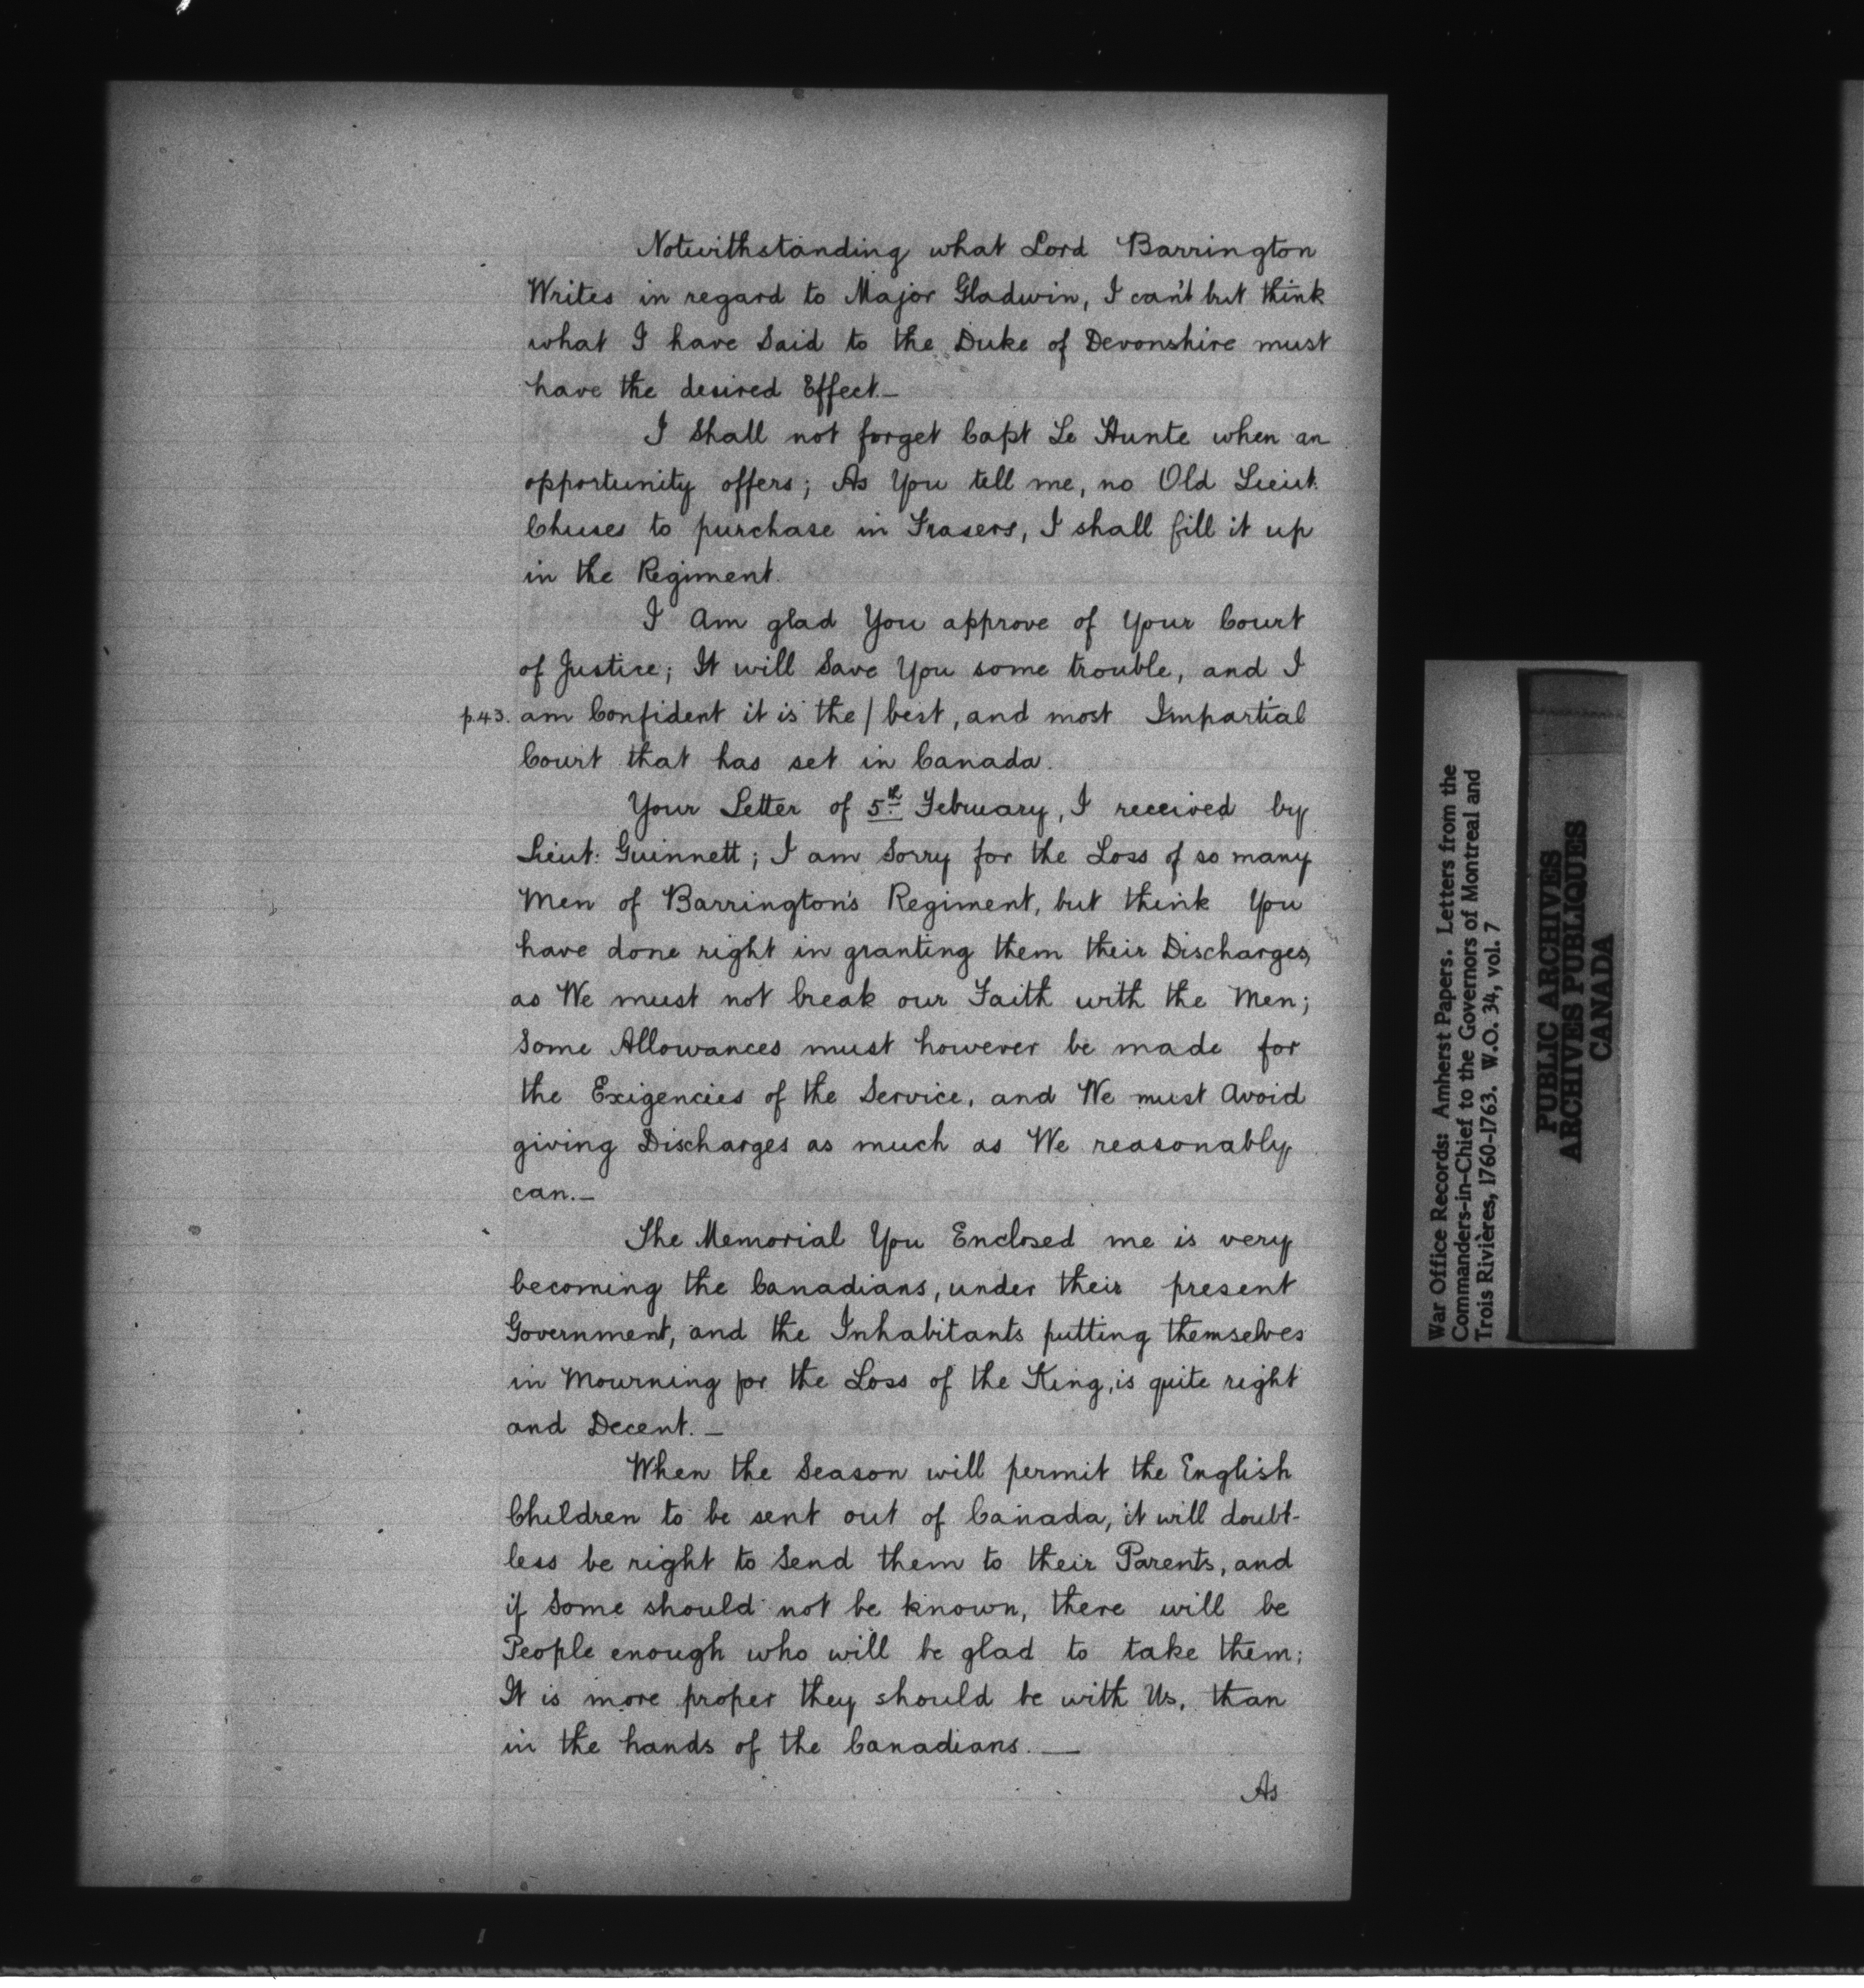 Notwithstanding what Lord Barrington
Writes in regard to Major Gladwin, I can't but think
what I have Said to the Duke of Devonshire must
have the desired Effect.—
I Shall not forget Capt Le Hunte when an
opportunity offers; As You tell me, no Old Lieut.
Chuses to purchase in Frasers, I shall fill it up
in the Regiment.
I Am glad You approve of Your Court
of Justice; It will Save You some trouble, and I
p.43. am Confident it is the / best, and most Impartial
Court that has set in Canada.
Your Letter of 5th February, I received by
Lieut: Guinnett; I am Sorry for the Loss of so many
Men of Barrington's Regiment, but think You
have done right in granting them their Discharges,
as We must not break our Faith with the Men;
Some Allowances must however be made for
the Exigencies of the Service, and We must Avoid
giving Discharges as much as We reasonably
can.—
The Memorial You Enclosed me is very
becoming the Canadians, under their present
Government, and the Inhabitants putting themselves
in Mourning for the Loss of the King, is quite right
and Decent.—
When the Season will permit the English
Children to be sent out of Canada, it will doubt-
less be right to Send them to their Parents, and
if Some should not be known, there will be
People enough who will be glad to take them;
It is more proper they should be with Us, than
in the hands of the Canadians.—
As
War Office Records: Amherst Papers. Letters from the
Commanders-in-Chief to the Governors of Montreal and
Trois Rivières, 1760-1763. W.O. 34, vol. 7
PUBLIC ARCHIVES
ARCHIVES PUBLIQUES
CANADA